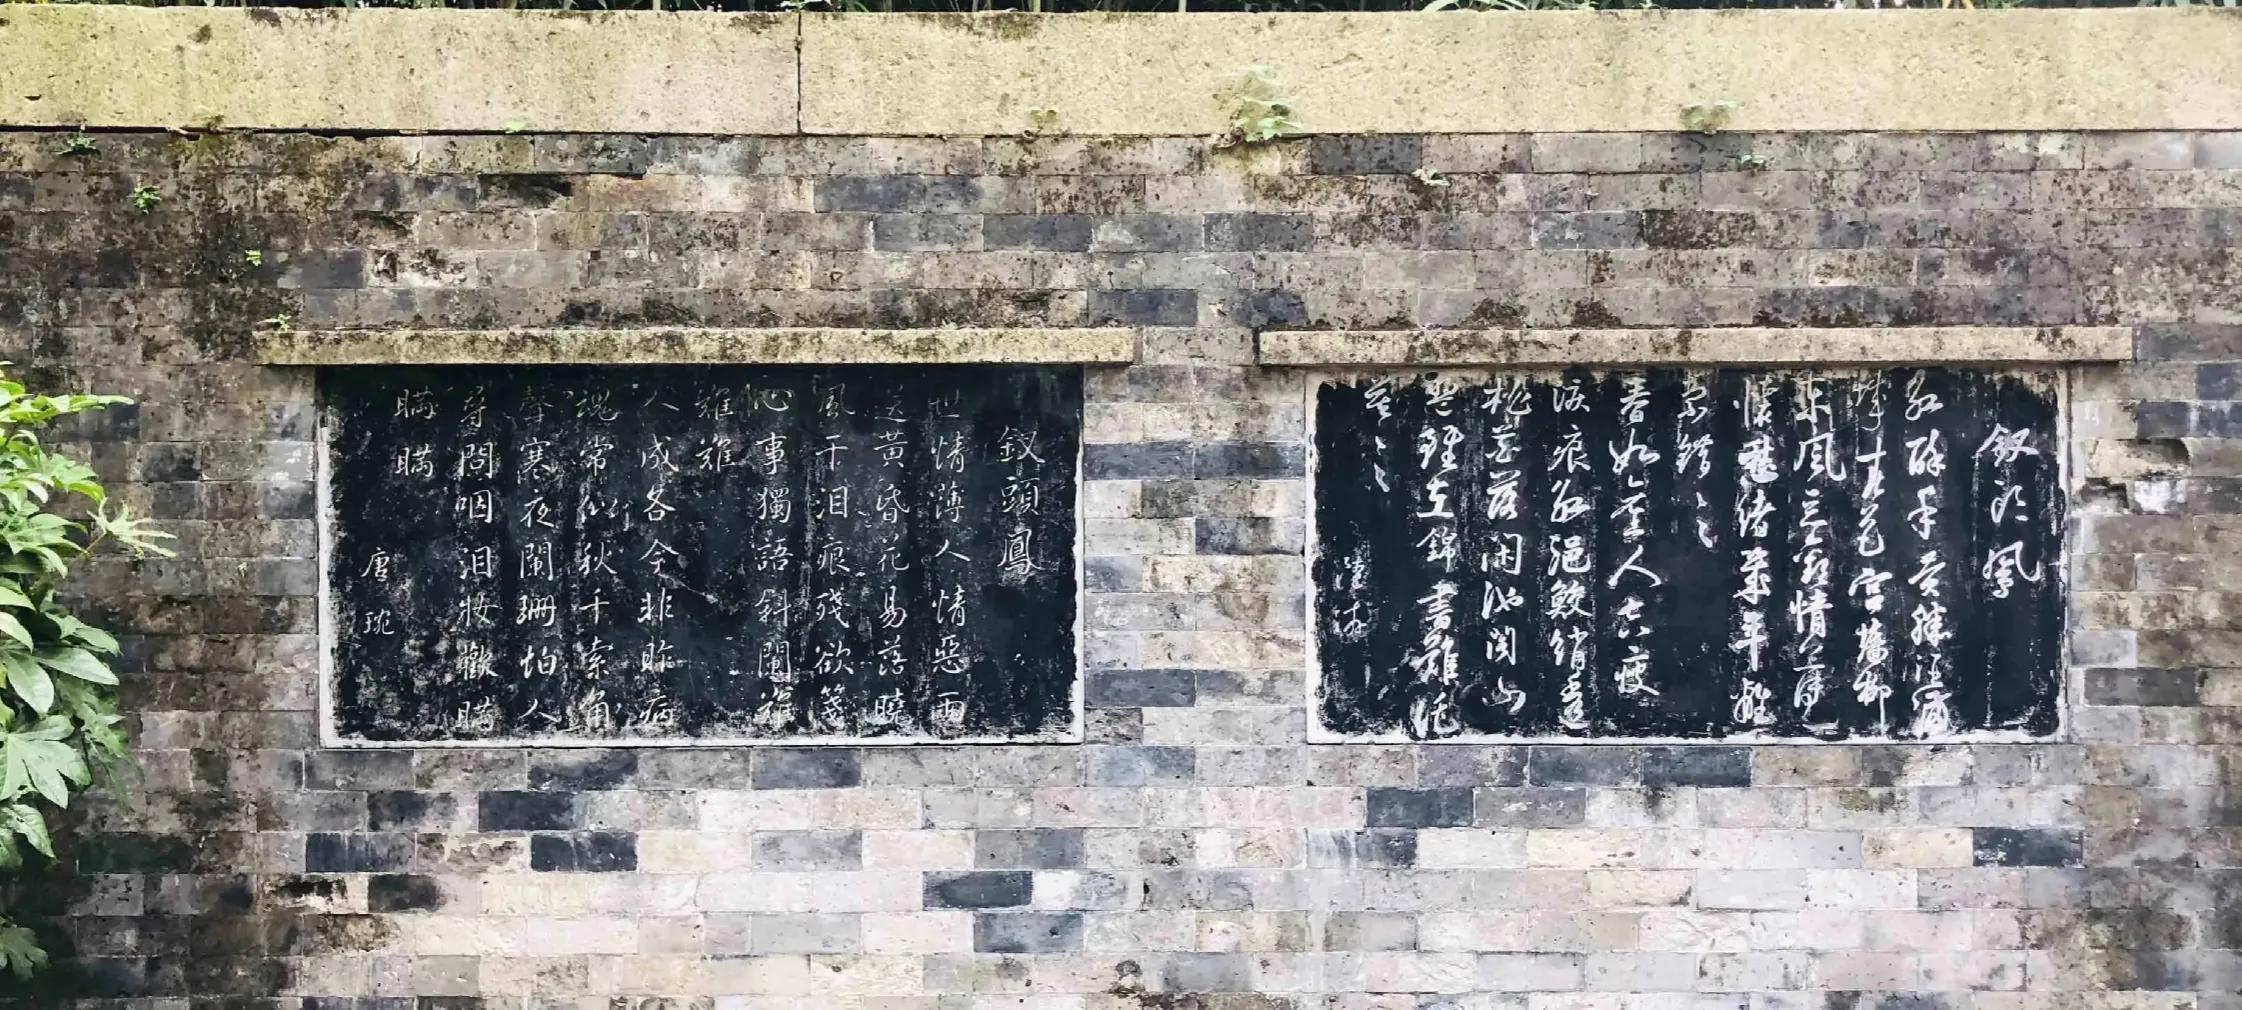 釵頭鳳
紅酥手黃縢酒滿
城春色宮牆柳
東風惡歡情薄一
懷愁緒幾年離
索錯〻〻
春如舊人空瘦
淚痕紅浥鮫綃透
桃花落閑池閣山
盟雖在錦書難托
莫〻〻
陸游
釵頭鳳
世情薄人情惡雨
送黃昏花易落曉
風干泪痕殘欲箋
心事獨語斜闌難
難難
人成各今非昨病
魂常似秋千索角
聲寒夜闌珊怕人
尋問咽泪妝歡瞞
瞞瞞
唐琬